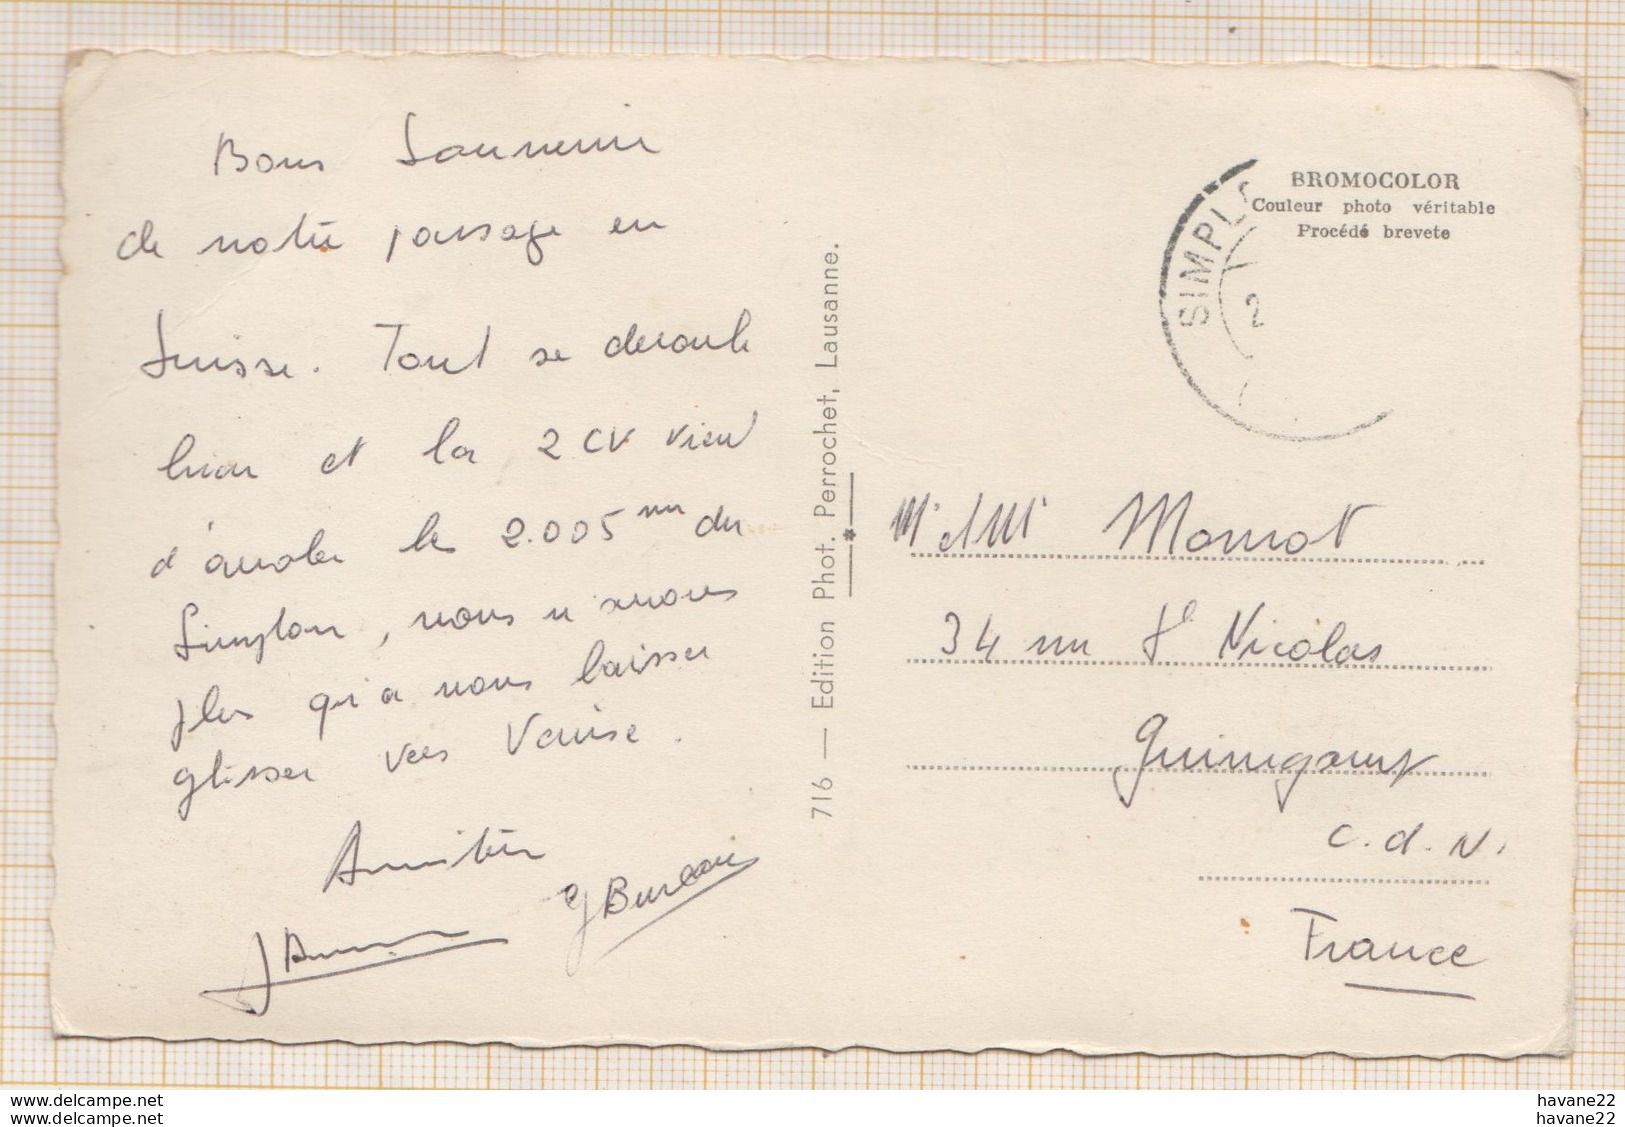 Bons Souvenir
de notre passage en
Suisse. Tout se deroule
bien et la 2 CV vient
d'avaler les 2.005 m du
Simplon, nous n'avons
plus qu'a nous laisser
glisser vers Venise.
Amitiés
716 — Edition Phot. Perrochet, Lausanne.
BROMOCOLOR
Couleur photo véritable
Procédé brevete
SIMPL
2
Mr et Me
34 rue St Nicolas
Guimgamp
C.d.N.
France
www.delcampe.net
www.delcampe.net
havane22
havane22